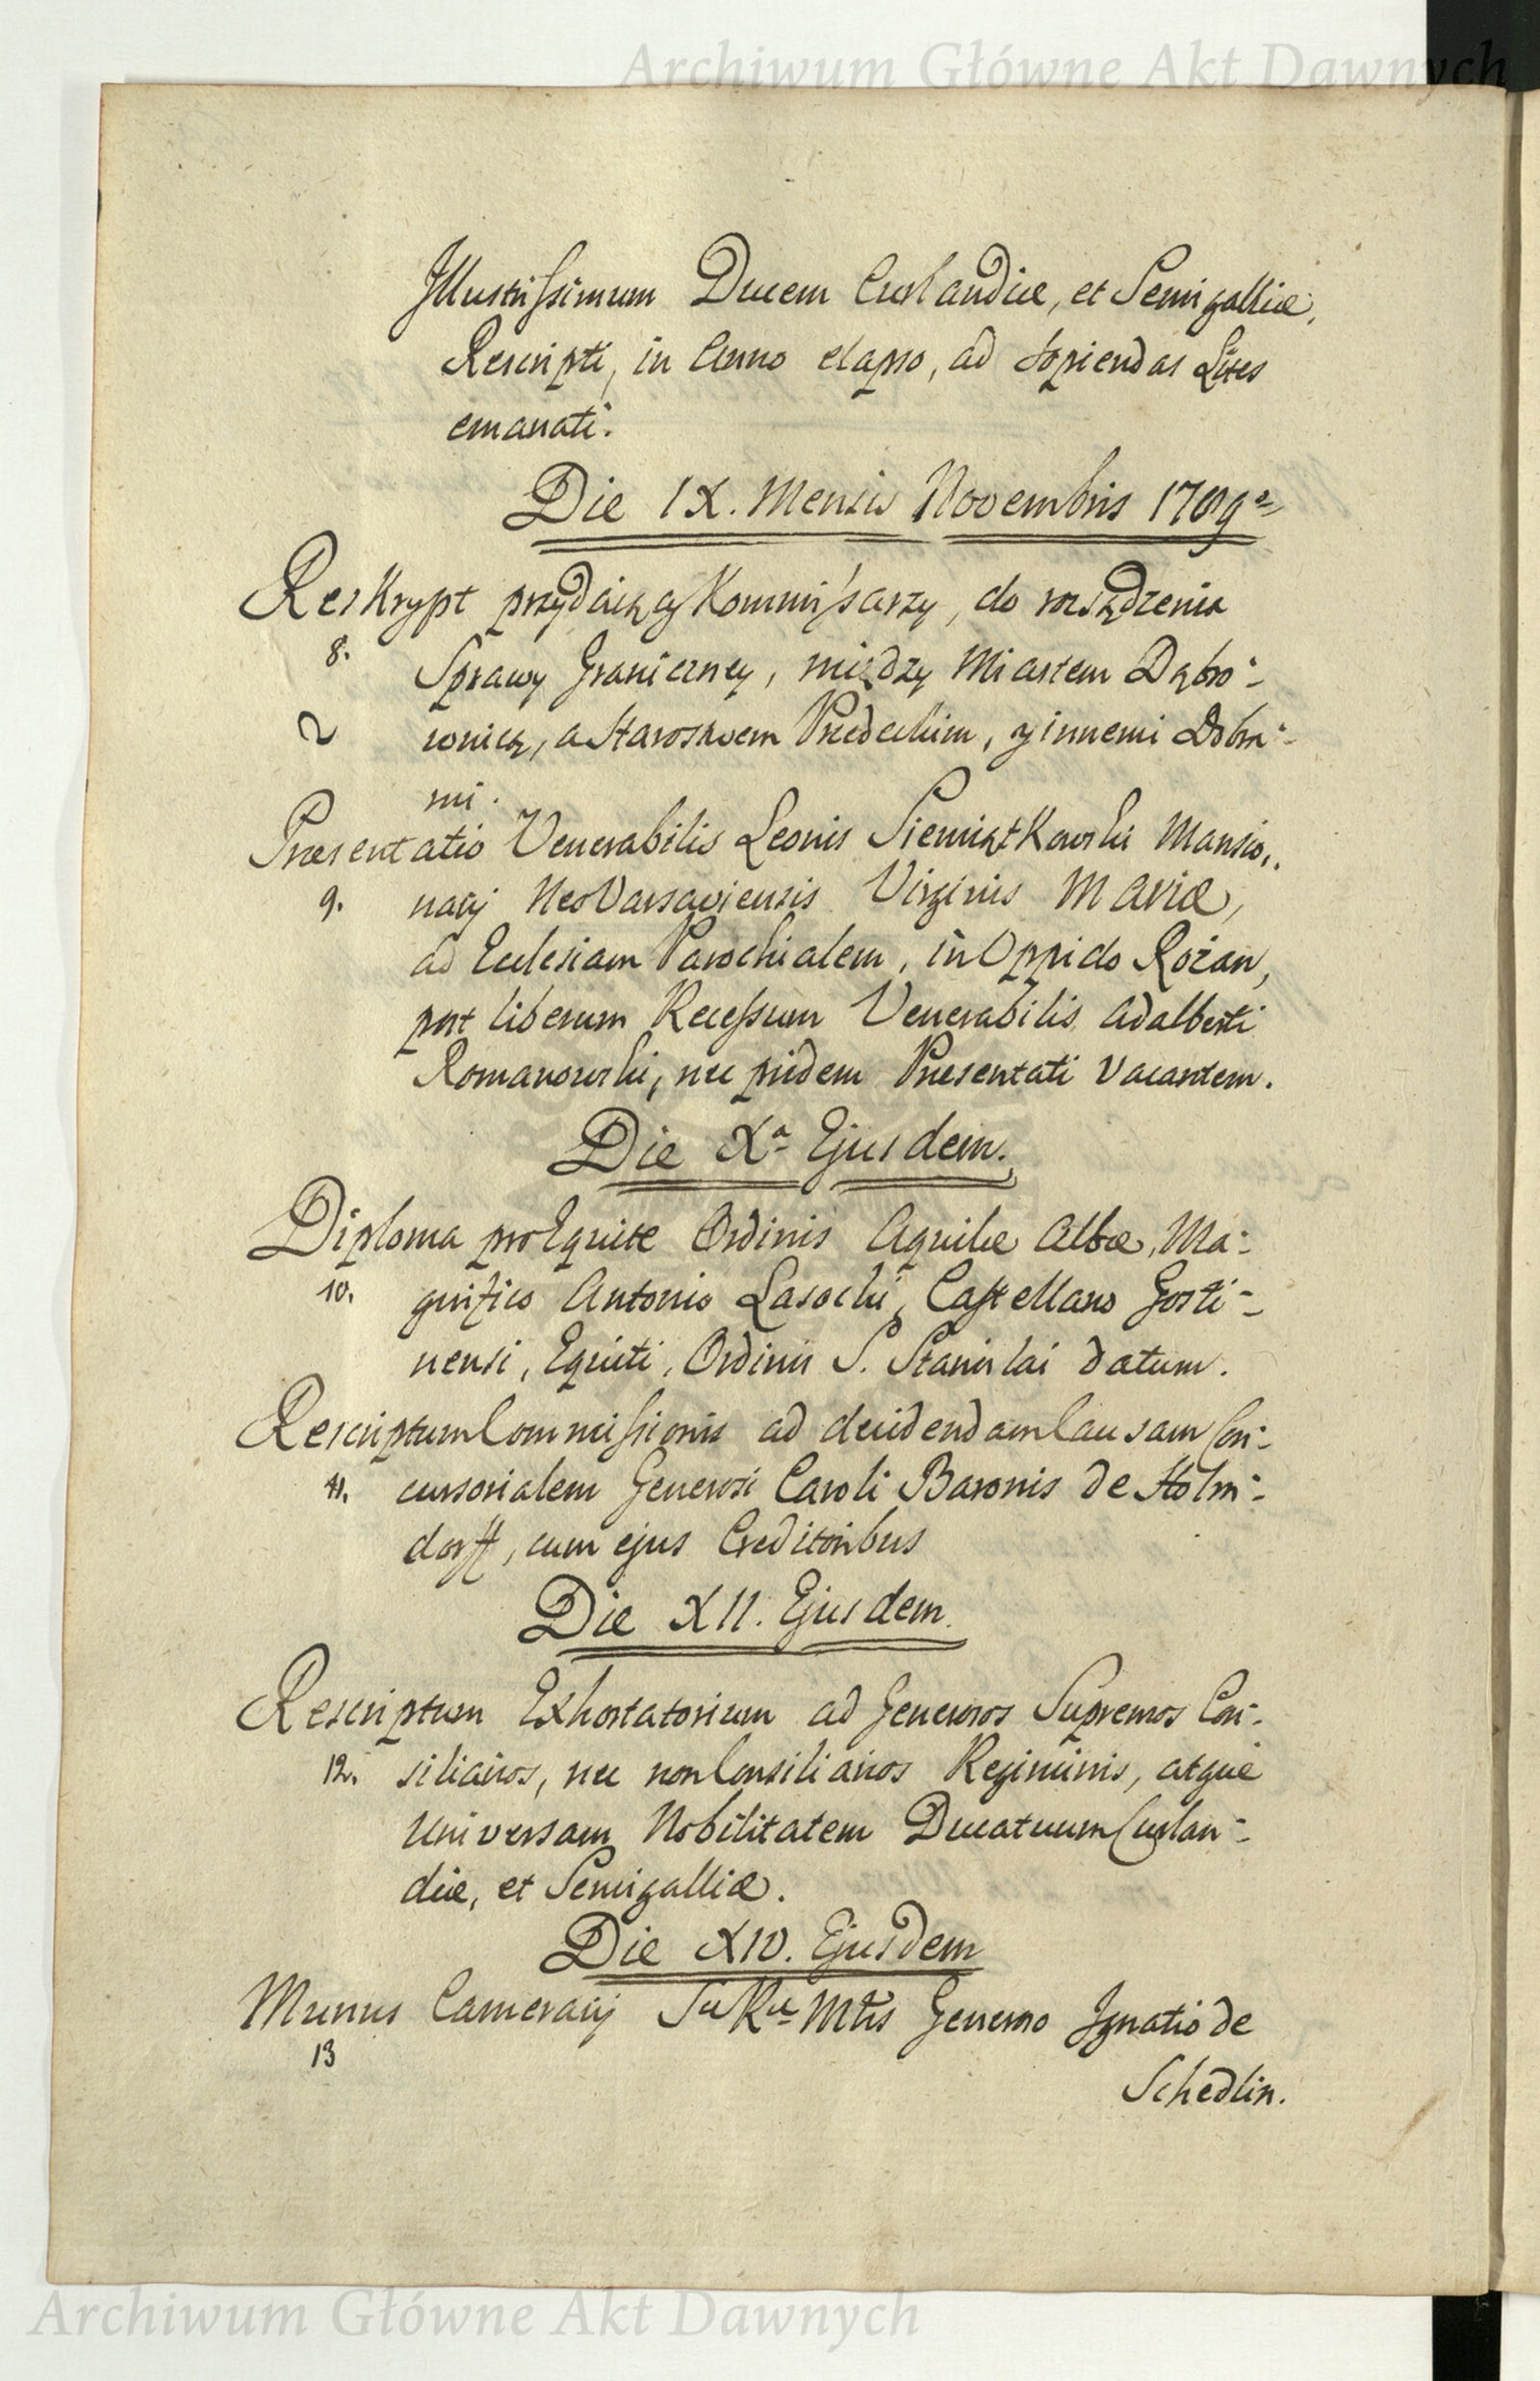 Archiwum Główne Akt Dawnych
Illustrissimum Ducem Curlandiæ, et Semigalliæ,
Rescripti, in Anno elapso, ad sopiendas Lites
emanati.
Die IX. Mensis Novembris 1789ᵒ
Reskrypt przydaiący Kommissarzy, do rozsądzenia
8. Sprawy Graniczney, między Miastem Dąbro=
wnicą, a Starostwem Przedeckim, y innemi Dobra=
mi.
Præsentatio Venerabilis Leonis Siemiątkowski Mansio„
9. narij NeoVarsaviensis Virginis Mariæ,
ad Ecclesiam Parochialem, in Oppido Rożan,
post liberum Recessum Venerabilis Adalberti
Romanowski, nec pridem Præsentati vacantem.
Die Xᵃ Ejusdem.
Diploma pro Equite Ordinis Aquilæ Albæ, Ma=
10. gnifico Antonio Lasocki, Castellano Gosti=
nensi, Equiti, Ordinis S. Stanislai datum.
Rescriptum Commissionis ad decidendam Causam Con=
11. cursorialem Generosi Caroli Baronis de Holm=
dorff, cum ejus Creditoribus
Die XII. Ejusdem.
Rescriptum Exhortatorium ad Generosos Supremos Con=
12. siliarios, nec non Consiliarios Regiminis, atque
Universam Nobilitatem Ducatuum Curlan=
diæ, et Semigalliæ.
Die XIV. Ejusdem
Munus Camerarij Sæ Ræ Mtis Generoso Ignatio de
13
Schedlin.
Archiwum Główne Akt Dawnych